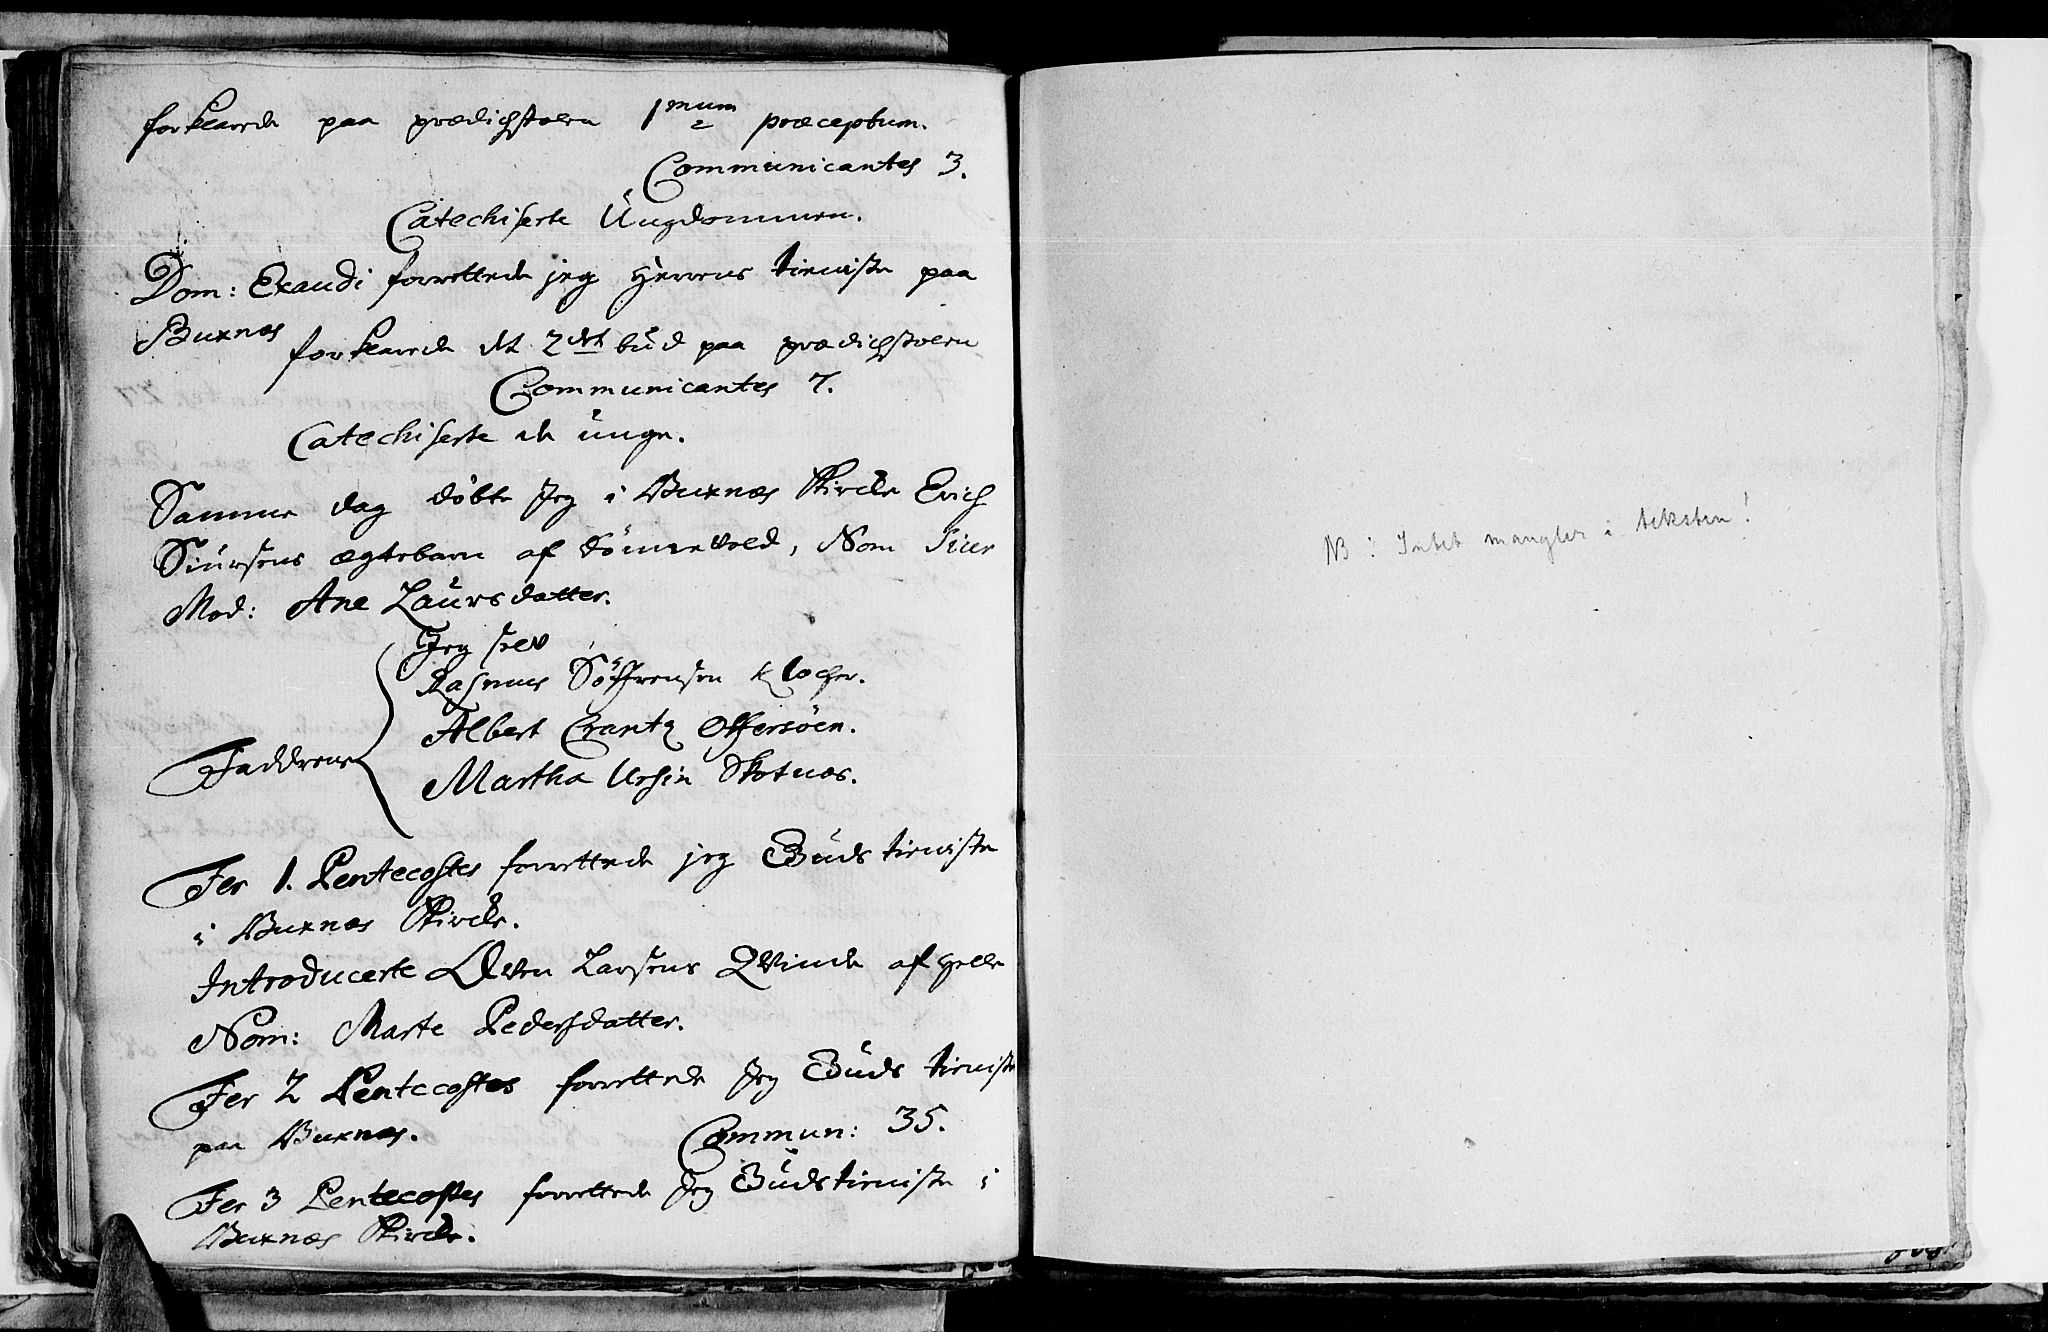 forklarede paa prædichstolen 1mum præceptum.
Communicantes 3.
Catechiserte Ungdommen.
Dom: Exaudi forrettede jeg Herrens tieniste paa
Buxnæs
forklarede det 2det bud paa prædichstolen
Communicantes 7.
Catechiserte de unge.
Samme dag døbte Jeg i Buxnæs Kircke Erich
Siursens ægtebarn af, Nom Siur
Mod: Ane Laursdatter.
Jeg selv
Rasmus Söffrensen Klocher.
Albert Crantz Offersöen.
Faddrene
Martha Ursin Skotnæs.
Fer 1. Pentecostes forrettede jeg Guds tieniste
i Buxnæs Kircke.
Introducerte Lars​ens Qvinde af Helle
Nom: Marte Pedersdatter.
Fer 2 Pentecostes forrettede Jeg Guds tieniste
paa Buxnæs.
Commun: 35.
Fer 3 Pentecostes forrettede Jeg Gudstieniste i
Buxnæs Kircke.
NB! Intet mangler i teksten!